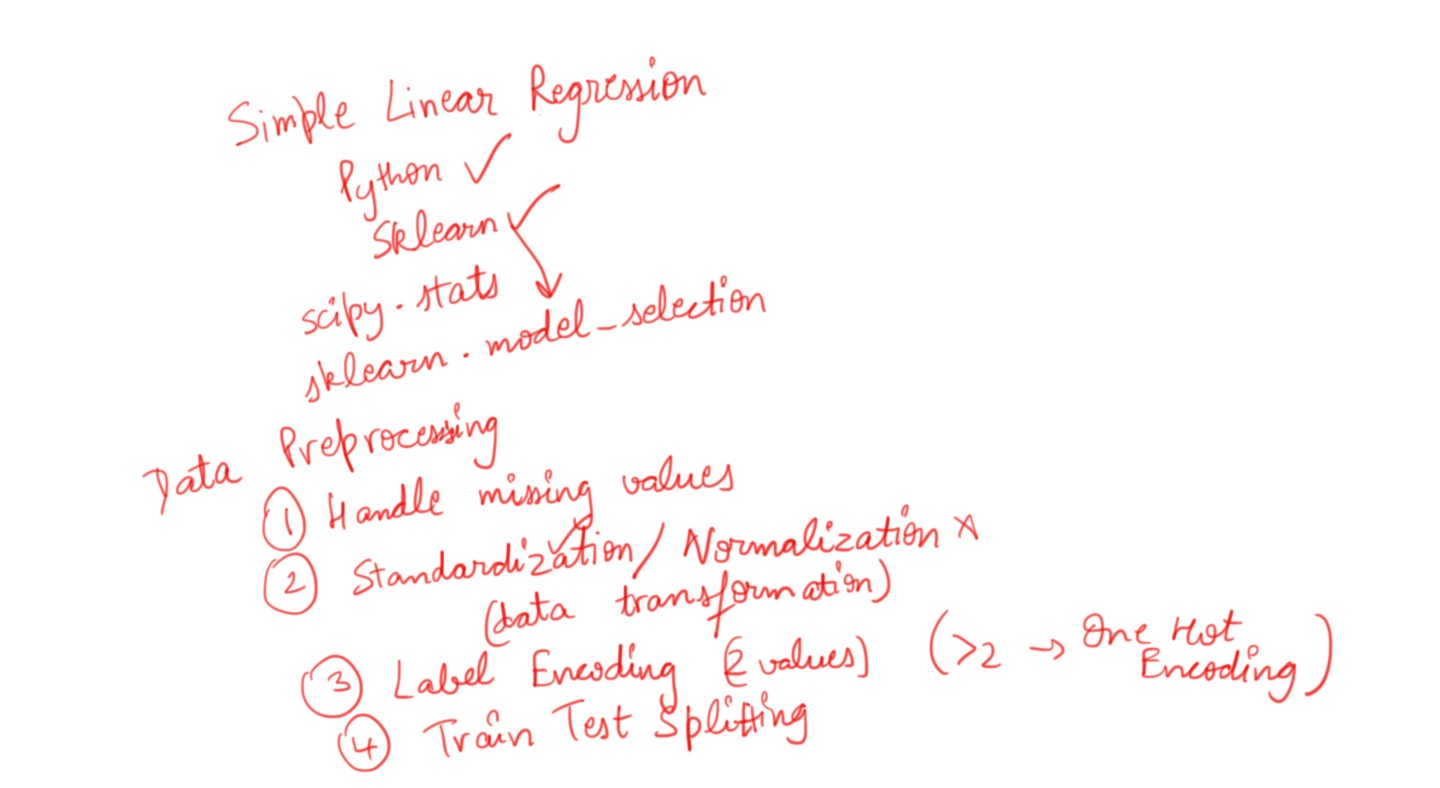 Simple Linear Regression
Python ✓
Sklearn ✓
scipy.stats
sklearn.model_selection
Data Preprocessing
① Handle missing values
② Standardization ✓ / Normalization ×
(data transformation)
③ Label Encoding (2 values) (>2 → One Hot Encoding)
④ Train Test Splitting